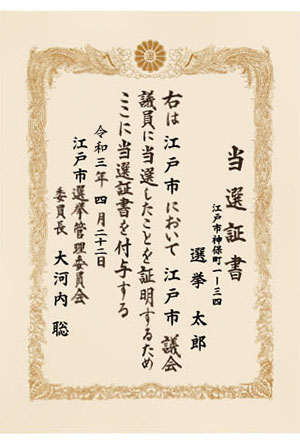 当選証書
江戸市神保町一ー三四
選挙太郎
右は江戸市において江戸市議会
議員に当選したことを証明するため
ここに当選証書を付与する
令和三年四月二十二日
江戸市選挙管理委員会
委員長 大河内聡